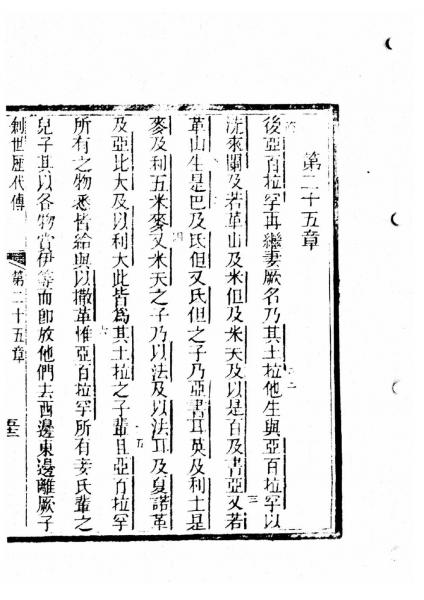 第二十五章
後亞百拉罕再繼妻厥名乃其土拉他生與亞百拉罕以
洗來闌及若革山及米但及米天及以是百及書亞又若
革山生是巴及氐但又氐但之子乃亞書耳英及利士是
麥及利五米麥又米天之子乃以法及以法耳及夏諾革
及亞比大及以利大此皆爲其土拉之子輩且亞百拉罕
所有之物悉皆給與以撒革惟亞百拉罕所有妾氏輩之
兒子其以各物賞伊等而卽放他們去西邊東邊離厥子
創世歷代傳 第二十五章